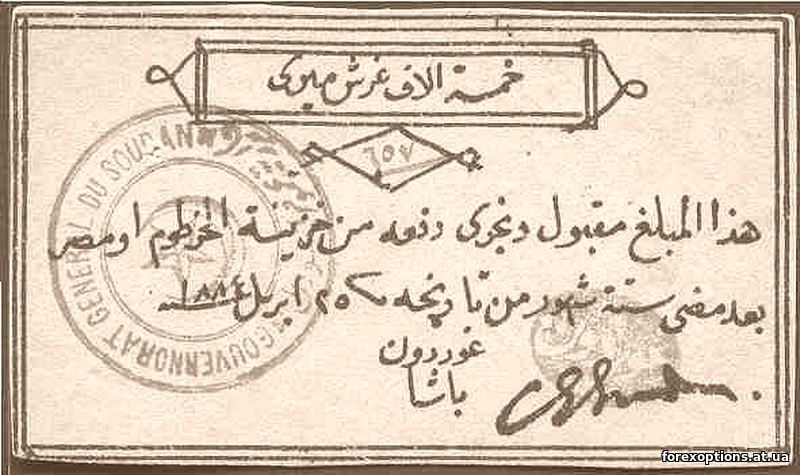 خمسة الاف غرش ميرى
٦٥٧
هذا المبلغ مقبول ويجرى دفعه من خزينة الخرطوم او مصر
بعد مضى ستة شهور من تاريخه ٢٥ ابريل ١٨٨٤
غوردون
باشا
GOUVERNORAT GENERAL DU SOUDAN
forexoptions.at.ua